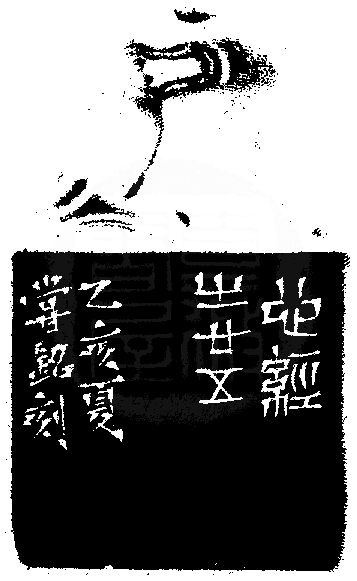 心經
之廿五
乙亥夏
銘刻